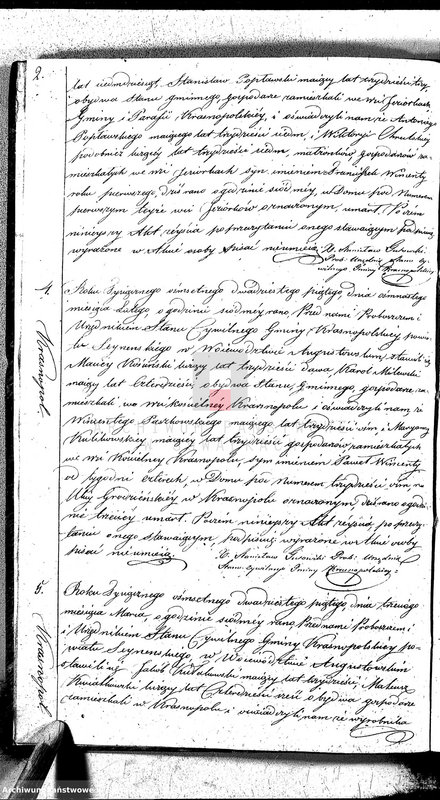 2.
lat siedmdziesiąt, Stanisław Popławski maiący lat trzydzieści trzy
obydwa Stanu gminnego, gospodarze zamieszkali we wsi Jeziorkach
Gminy i Parafii Krasnopolskiéy, i oświadczyli nam, że Antoniego
Popławskiego maiącego lat trzydzieści siedm, i Wiktoryi
podobnież liczącéy lat trzydzieści siedm, małżonków gospodarów za
mieszkałych we wsi Jeziorkach syn imieniem Franciszek Wincenty
roku pierwszego, dziś rano o godzinie siódméy, w Domu pod Numerem
pierwszym teyże wsi Jeziorków oznaczonym, umarł. Poczem
ninieyszy Akt zeyścia po przeczytaniu onego stawaiącym podpisany
wyrażone w Akcie osoby pisać nieumieią.
X. Stanisław
Prob: Urzędnik Stanu Cy-
wilnego Gminy Krasnopolskiey
4.
Krasnopol.
Roku Tysiącznego ośmsetnego dwudziestego piątego, dnia ósmnastego
miesiąca Lutego o godzinie siódméy rano. Przed nami Proboszczem i
Urzędnikiem Stanu Cywilnego Gminy Krasnopolskiey powia-
tu Seynenskiego w Woiewództwie Augustowskim, stawili się
Maciéy Kosiński liczący lat trzydzieści dwa, Karol Milewski
maiący lat Czterdzieści, obydwa Stanu Gminnego, gospodarze za-
mieszkali we wsi kościelnéy Krasnopolu i oświadczyli nam, że
Wincentego Paszkowskiego maiącego lat trzydzieści ośm i Maryanny
Kulikowskiey maiącéy lat trzydzieści gospodarzów zamieszkałych
we wsi Kościelnéy Krasnopolu, syn imieniem Paweł Wincenty
od tygodni Czterech, w Domu pod Numerem trzydzieści ośm na
Ulicy Grodzińskiéy w Krasnopolu oznaczonym, dziś rano o godzi-
nie trzeciéy umarł. Poczem ninieyszy Akt zeyścia, po przeczy-
taniu onego stawaiącym, podpisany, wyrażone w Akcie osoby
pisać nieumieią.
X. Stanisław Prob: Urzędnik
Stanu Cywilnego Gminy Krasnopolskiéy
5.
Krasnopol
Roku Tysiącznego ośmsetnego dwudziestego piątego, dnia trzeciego
miesiąca Marca, o godzinie siódméy rano, Przed nami Proboszczem
i Urzędnikiem Stanu Cywilnego Gminy Krasnopolskiéy po-
wiatu Seynenskiego, w Woiewództwie Augustowskim
stawili się Jakób maiący lat trzydzieści, Mateusz
Kwiatkowski liczący lat Czterdzieści sześć obydwa gospodarze
zamieszkali w Krasnopolu i oświadczyli nam że wyrobnika
Archiwum Państwowe